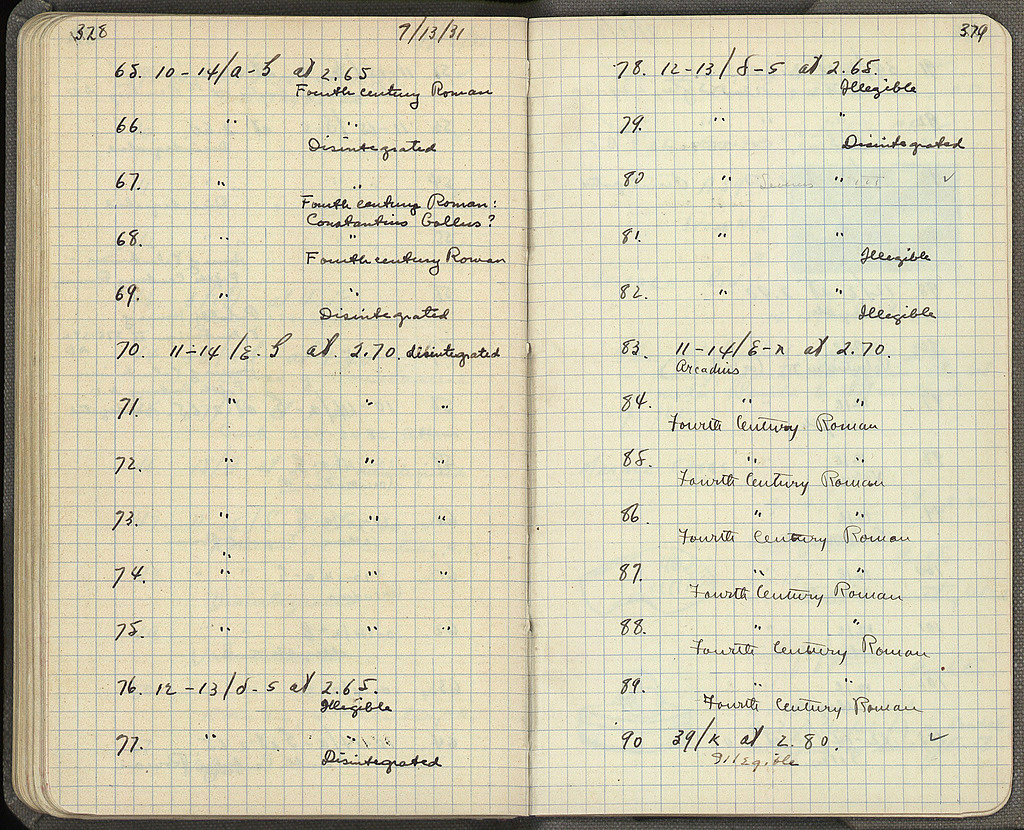 328
7/13/31
65. 10-14/a-b at 2.65
Fourth century Roman
66. " "
Disintegrated
67. " "
Fourth century Roman:
Constantius Gallus?
68. " "
Fourth century Roman
69. " "
Disintegrated
70. 11-14/ε-b at 2.70. disintegrated
71. " " "
72. " " "
73. " " "
74. " " "
75. " " "
76. 12-13/δ-5 at 2.65.
Illegible
77. " "
Disintegrated
379
78. 12-13/δ-5 at 2.65.
Illegible
79. " "
Disintegrated
80 " Severus " III ✓
81. " "
Illegible
82. " "
Illegible
83. 11-14/ε-π at 2.70.
Arcadius
84. " "
Fourth Century Roman
85. " "
Fourth Century Roman
86. " "
Fourth Century Roman
87. " "
Fourth Century Roman
88. " "
Fourth Century Roman
89. " "
Fourth Century Roman
90 39/K at 2.80. ✓
Illegible